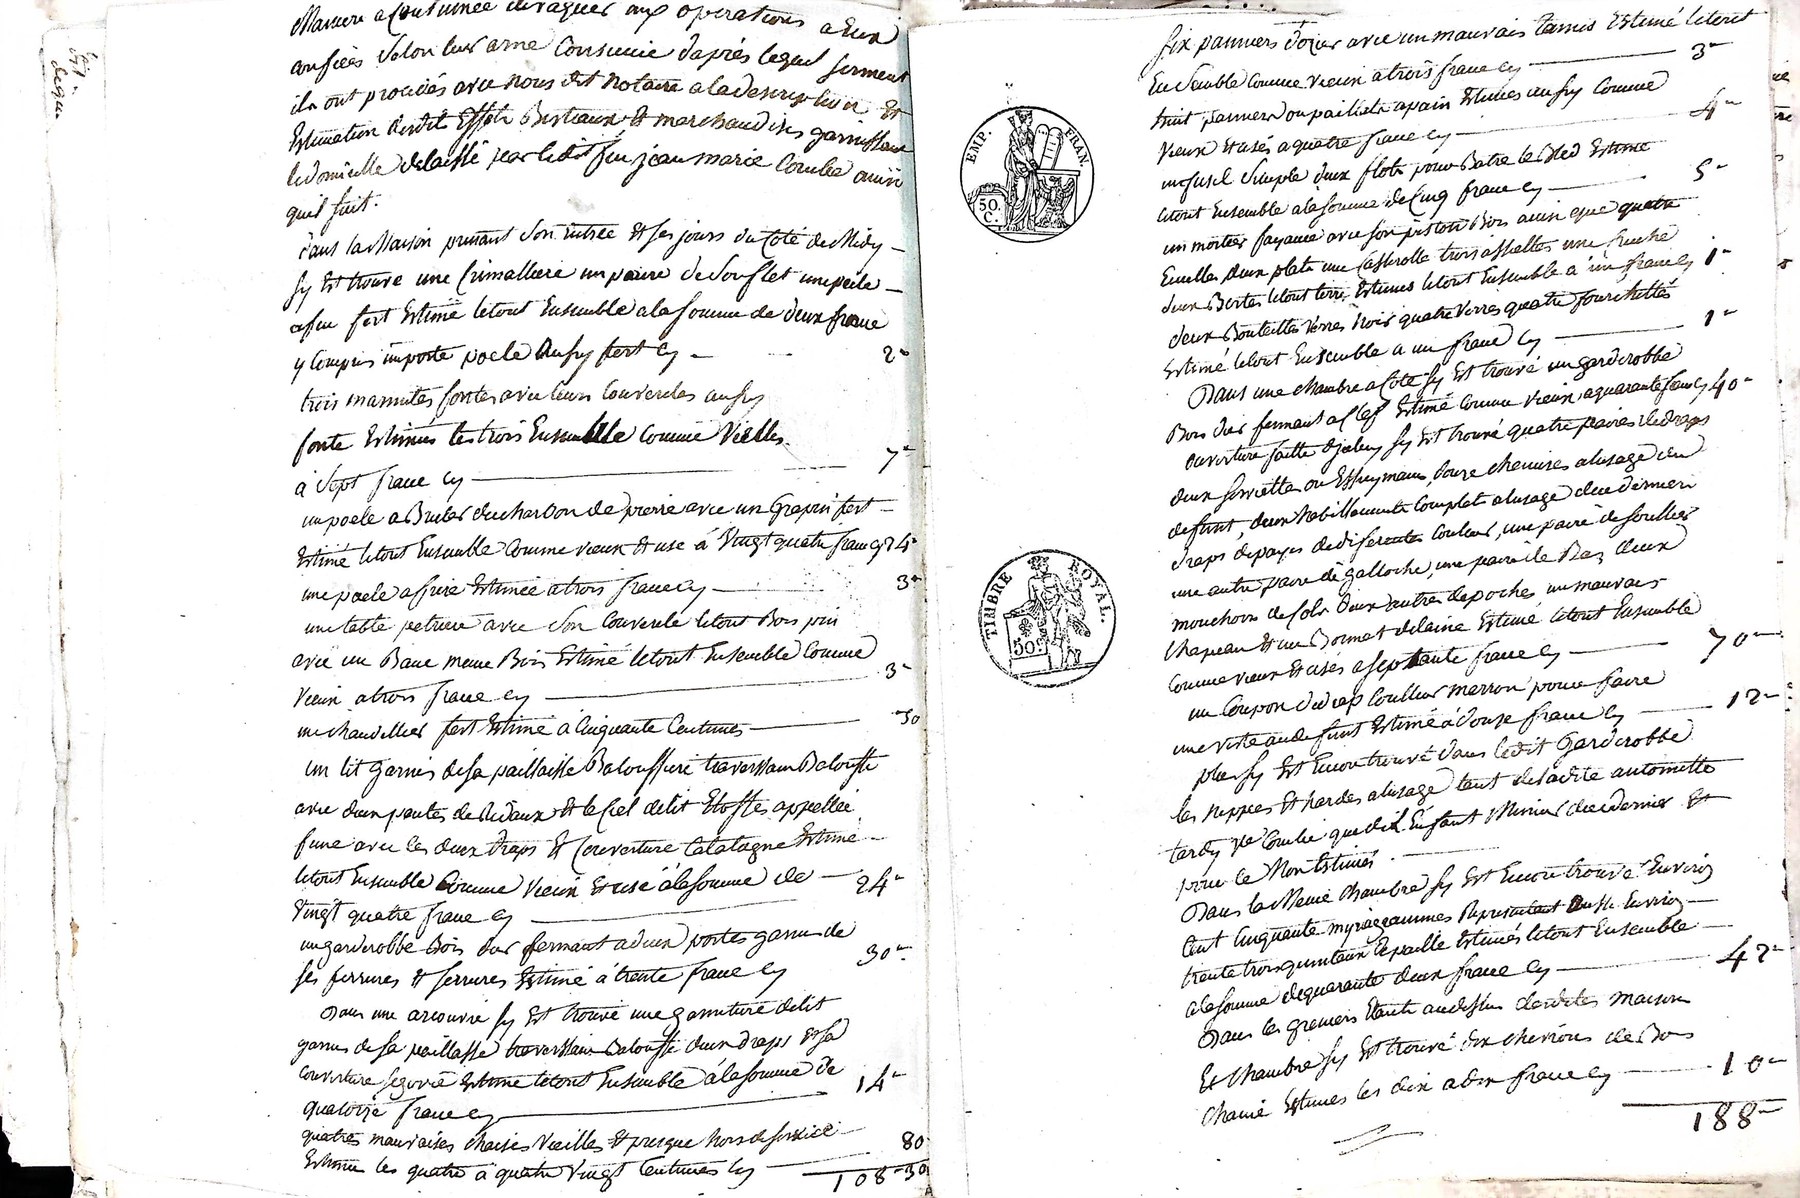 Maniere acoutumée de vaquer aux operations a Eux
confiées Selon leur ame Consiencie daprés lequel serment
ils ont procédés avec nous dit Notaire a la description Et
Estimation desdits Effets Bestiaux Et marchandises garnissant
le domicille délaissé par ledit feu jean marie Combe ainsi
quil suit.
dans la Maison prenant Son Entrée Et ses jours du Coté de Midy —
sy Est trouvé une Crimalliere un paire de Souflet une pèle —
afeu fert Estimé letout Ensemble a la somme de deux franc
y Compris importe poele Ausy fert Cy — 2"
trois marmites fontes avec leurs Couvercles aussy
fonte Estimées les trois Ensemble Comme Vielles
à Sept franc cy — 7"
un poele a Bruler ducharbon de pierre avec un Grapin fert —
Estimé letout Ensemble Comme vieux Et usé à Vingt quatre franc cy 24"
une poele afrire Estimée a trois franc cy — 3"
une table petriere avec Son Couvercle letout Bois pin
avec un Banc meme Bois Estimé letout Ensemble Comme
vieux a trois franc cy — 3"
un chandellier fert Estimé a Cinquante Centimes — "50
un lit garnis de sa paillasse Balouffiere traversain Balouffe
avec deux pentes de Rideaux Et le Ciel delit Etoffes appellée
fune avec les deux draps Et Couverture Catalogne Estimé —
letout Ensemble Comme vieux Et usé à la somme de —
Vingt quatre franc cy — 24"
un garderobbe Bois dur fermant a deux portes garnis de
ses ferrures Et serrures Estimé à trente franc Cy 30"
Dans une arcouvre sy Est trouvé une garniture delit
garnis de sa paillasse traversain Balouffe deux draps Et sa
couverture Estimé letout Ensemble à la somme de
quatorze franc cy — 14"
quatres mauvaises chaises vieilles Et presque hors de service —
Estimée les quatre a quatre vingt Centimes Cy — 80
108"30
six panniers dozier avec un mauvais Tamis Estimé letout
Ensemble Comme vieux a trois franc cy — 3"
huit panniers ou paillats apain Estimes aussy Comme
vieux Et usés a quatre franc cy — 4"
un fusil Simple deux flots pour Batre le Bled Estimé
letout Ensemble a la somme de Cinq franc cy — 5"
un mortier fayance avec son piston Bois ainsi que quatre
Ecuelles deux plats une Casserolle trois assiettes une Cruche
deux Bertes letout terre Estimes letout Ensemble a un franc cy 1"
deux Bouteilles Verres Noir quatre Verres quatre fourchettes
Estimé letout Ensemble a un franc cy — 1"
Dans une chambre a Coté sy Est trouvé un garderobbe
Bois dur fermant a Clef Estimé Comme vieux a quarante franc cy 40"
ouverture faitte dycelluy sy Est trouvé quatre paires de draps
deux serviettes ou Essuymains, douze chemises alusage dud
defunt, deux habillements Complet alusage dud dernier
draps depays de diferentes Couleurs, une paire de soulliers
une autre paire de galloche, une paire de Bas, deux
mouchoirs de Cols deux autres de poches un mauvais
Chapeau Et un Bonnet de laine Estimé letout Ensemble
Comme vieux Et usés a septante franc cy — 70"
un Coupon du drap Coulleur marron pour faire
une veste audefunt Estimé à douze franc Cy — 12"
plus sy Est Encore trouvé dans ledit Garderobbe
les nippes Et hardes alusage tant de ladite antoinette
tardy ve Combe que de l'Enfant Mineur dud dernier Et
pour Ce Non Estimés. —
Dans la Meme chambre sy Est Encore trouvé Environ
Cent Cinquante myragrammes Representant Environ —
trente trois quintaux de paille Estimés letout Ensemble —
a la somme de quarante deux franc Cy — 42"
Dans les greniers Etants audessus desdites maison
Et Chambre sy Est trouvé dix chevrons de Bois
Estimes les dix a dix franc Cy — 10"
188"
EMP. FRAN.
50. C.
TIMBRE ROYAL.
50.